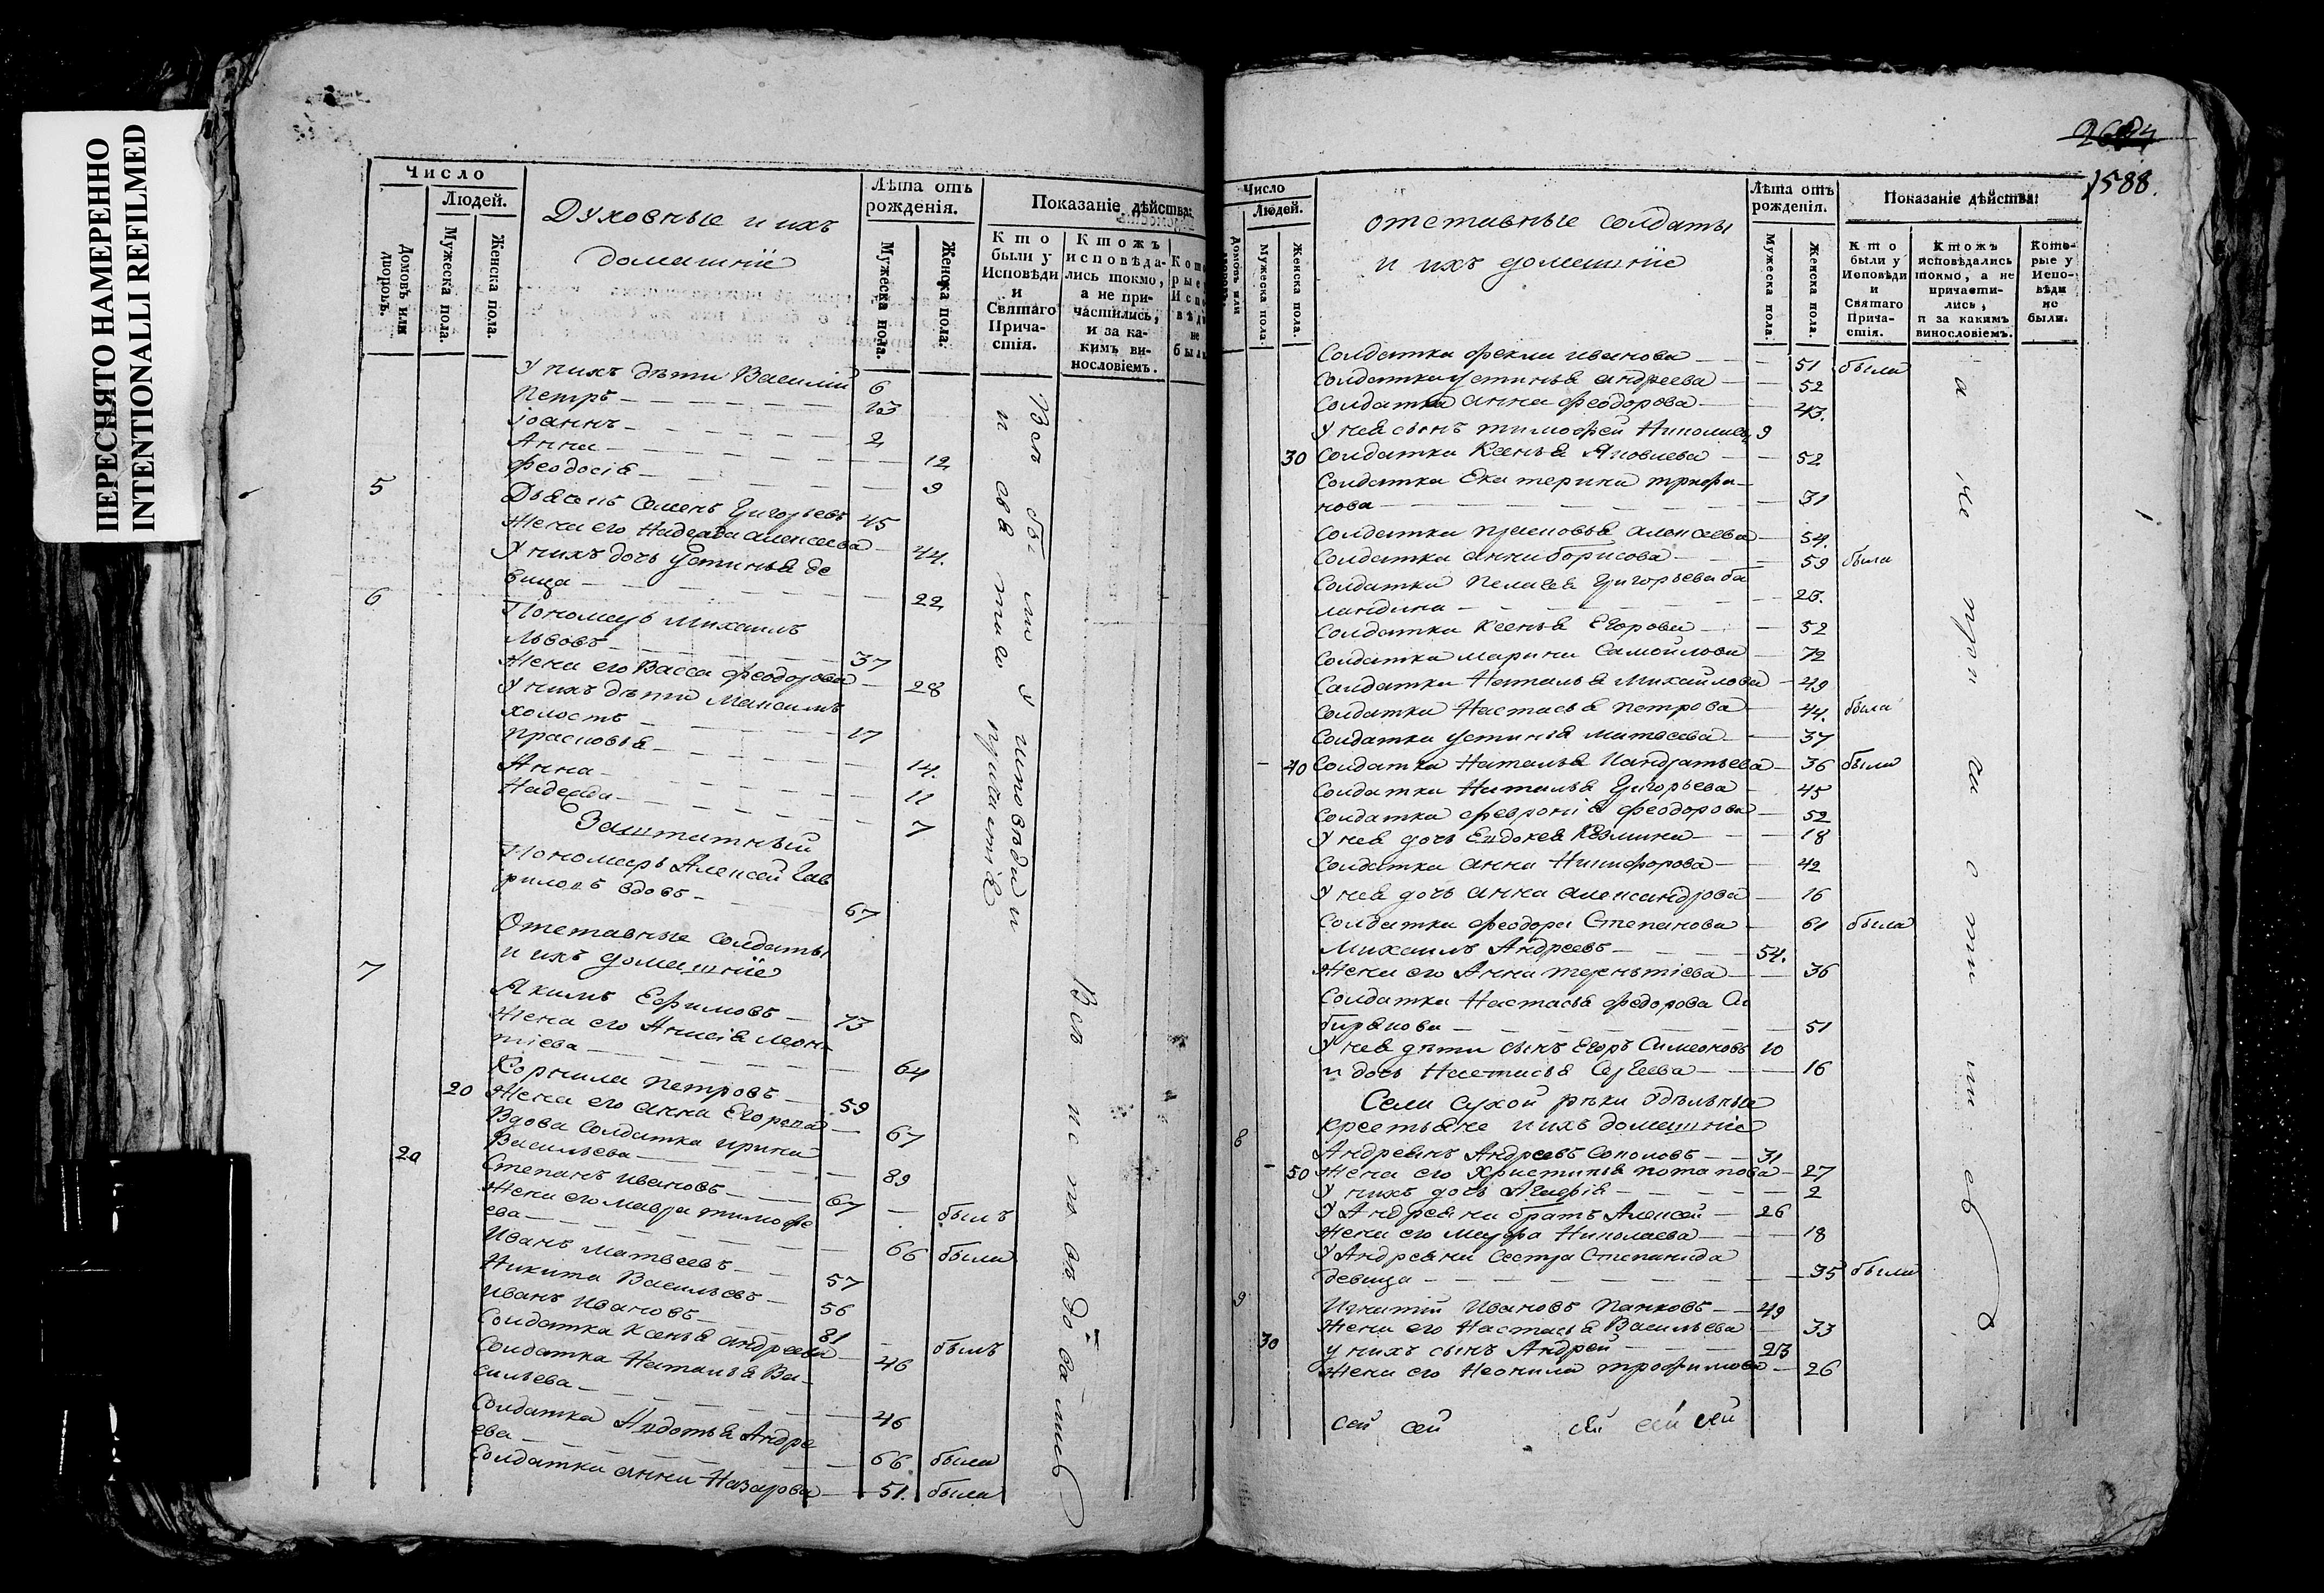 ПЕРЕСНЯТО НАМЕРЕННО
INTENTIONALLI REFILMED
Число
Людей.
Домовъ или дворовъ.
Мужеска пола.
Женска пола.
Духовные и ихъ
домашнiе
Лѣта отъ
рожденiя.
Мужеска пола.
Женска пола.
Показанiе дѣйства:
Кто
были у
Исповѣди
и
Святаго
Прича-
стiя.
Ктожъ
исповѣда-
лись токмо,
а не при-
частились,
и за ка-
кимъ ви-
нословiемъ.
У нихъ дѣти Василiй 6
Петръ
iоаннъ 2
Анна 12
Феодосiя 9
5 Дьяконъ Семенъ Григорьевъ 45
Жена его Надежда Алексеева 44.
У нихъ дочь Устинья де
вица 22
6 Пономарь Михаилъ
Львовъ 37
Жена его Васса Феодорова 28
У нихъ дѣти Максимъ
холостъ 17
Прасковья 14.
Анна 11
Надежда 7
Заштатный
Пономарь Алексей Гав
риловъ вдовъ 67
Отставные солдаты
и ихъ домашнiе
7 Якимъ Ефимовъ 73
Жена его Анисiя Леон-
тiева 64
Корнила Петровъ 59
20 Жена его Анна Егорова 67
Вдова солдатка Ирина
Васильева 89
20 Степанъ Ивановъ 67 былъ
Жена его Мавра Тимофе
ева 66 была
Иванъ Матвеевъ 57
Никита Васильевъ 56
Иванъ Ивановъ 81 былъ
Солдатка Ксенья Андреева 46
Солдатка Наталья Ва-
сильева 46
Солдатка Авдотья Андре
ева 66 была
Солдатка Анна Назарова 51. была
Всѣ бы ли у исповѣди и
и свя таго причастiя
Всѣ ис по вѣ до ва лись
1588.
Число
Людей.
Домовъ или дворовъ.
Мужеска пола.
Женска пола.
отставные солдаты
и ихъ домашнiе
Лѣта отъ
рожденiя.
Мужеска пола.
Женска пола.
Показанiе дѣйства:
Кто
были у
Исповѣди
и
Святаго
Прича-
стiя.
Ктожъ
исповѣдались
токмо, а не
причасти-
лись,
и за какимъ
винословiемъ.
Кото-
рые у
Испо-
вѣди
не
были.
Солдатка Фекла Иванова 51 была
Солдатка Устинья Андреева 52
Солдатка Анна Феодорова 43.
У нея сынъ Тимофей Николаевъ 9
30 Солдатка Ксенья Яковлева 52
Солдатка Екатерина Трифа-
нова 31
Солдатка Прасковья Алексеева 54.
Солдатка Анна Борисова 59 была
Солдатка Пелагея Григорьева Ба
ландина
Солдатка Ксенья Егорова 52
Солдатка Марина Самойлова 72
Солдатка Наталья Михайлова 49
Солдатка Настасья Петрова 44. была
Солдатка Устинья Матвеева 37
40 Солдатка Наталья Кандратьева 36 была
Солдатка Наталья Григорьева 45
Солдатка Феврония Феодорова 52
У нея дочь Евдокея Козмина 18
Солдатка Анна Никифорова 42
У нея дочь Анна Александрова 16
Солдатка Феодора Степанова 61 была
Михаилъ Андреевъ 54.
Жена его Анна Терентiева 36
Солдатка Настасья Федорова Си
бирякова 51
У нея дѣти сынъ Егоръ Симеоновъ 10
и дочь Настасья Сергеева 16
Села Сухой рѣки удѣльные
крестьяне и ихъ домашнiе
8 Андреянъ Андреевъ Соколовъ 31
50 Жена его Христинья Потапова 27
У нихъ дочь Агафiя 2
У Андреяна братъ Алексей 26
Жена его Марфа Николаева 18
У Андреяна сестра Степанида
девица 35 была
9 Игнатiй Ивановъ Панковъ 49
Жена его Настасья Васильева 33
30 У нихъ сынъ Андрей 23
Жена его Неонила Трофимова 26
сей сей сей сей сей
а не при ча сти ли сь